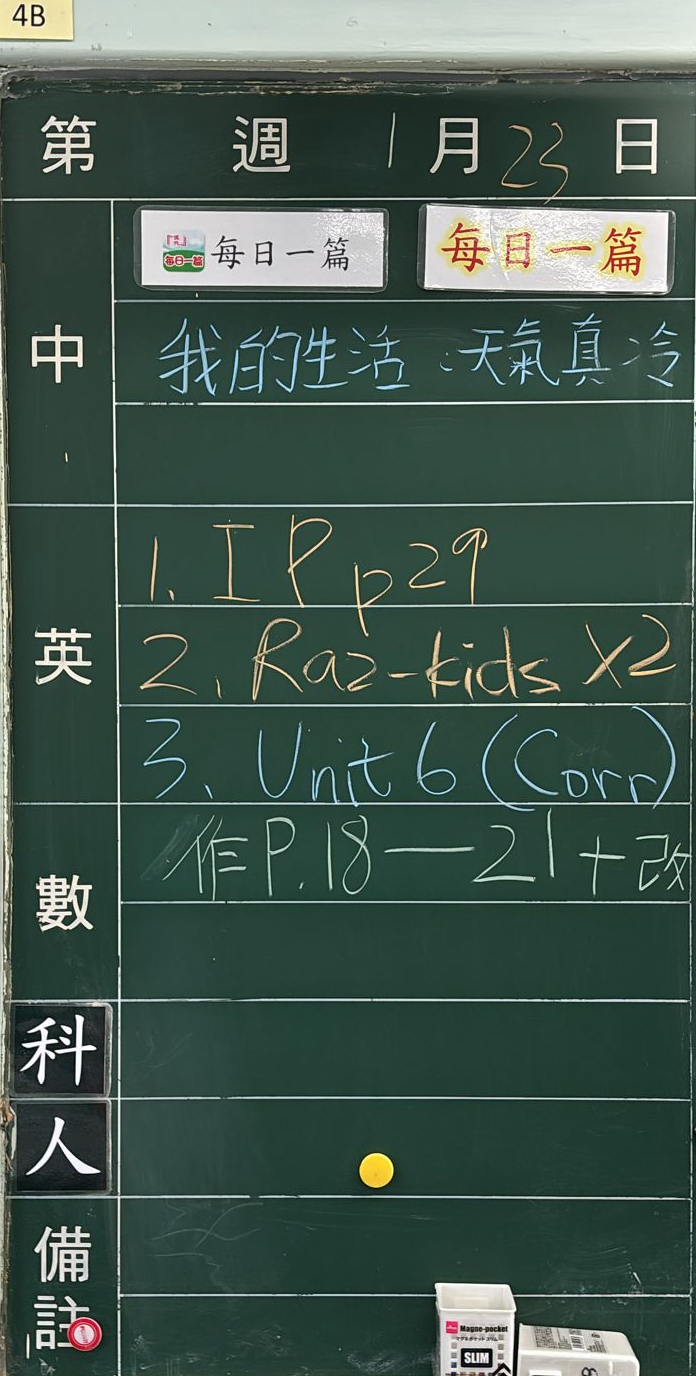 4B
第 週 1 月 23 日
每日一篇 每日一篇 每日一篇
中
我的生活:天氣真冷
英
1. IP p29
2. Raz-kids X2
3. Unit 6 (Corr)
數
作P.18—21+改
科
人
備
註
Magne-pocket
SLIM